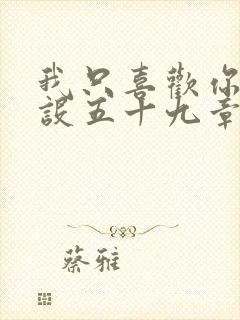 我只喜歡你
設五十九章
蔡雅